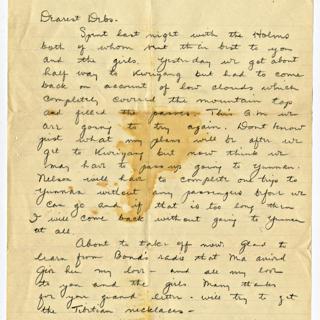 Dearest Debs.
Spent last night with the Holms
both of whom sent their best to you
and the girls. Yesterday we got about
half way to Kweiyang but had to come
back on account of low clouds which
completely covered the mountain tops
and filled the passes. This a.m. we
are going to try again. Dont know
just what my plans will be after we
get to Kweiyang but now think we
may have to pass up going to Yunnan.
Nelson will have to complete one trip to
Yunnan without any passengers before we
can go and if that is too long then
I will come back without going to Yunnan
at all.
About to take off now. Glad to
learn from Bond's radio that Ma arrived
Give her my love - and all my love
to you and the girls Many thanks
for you grand letter - will try to get
the Tibetian necklaces -